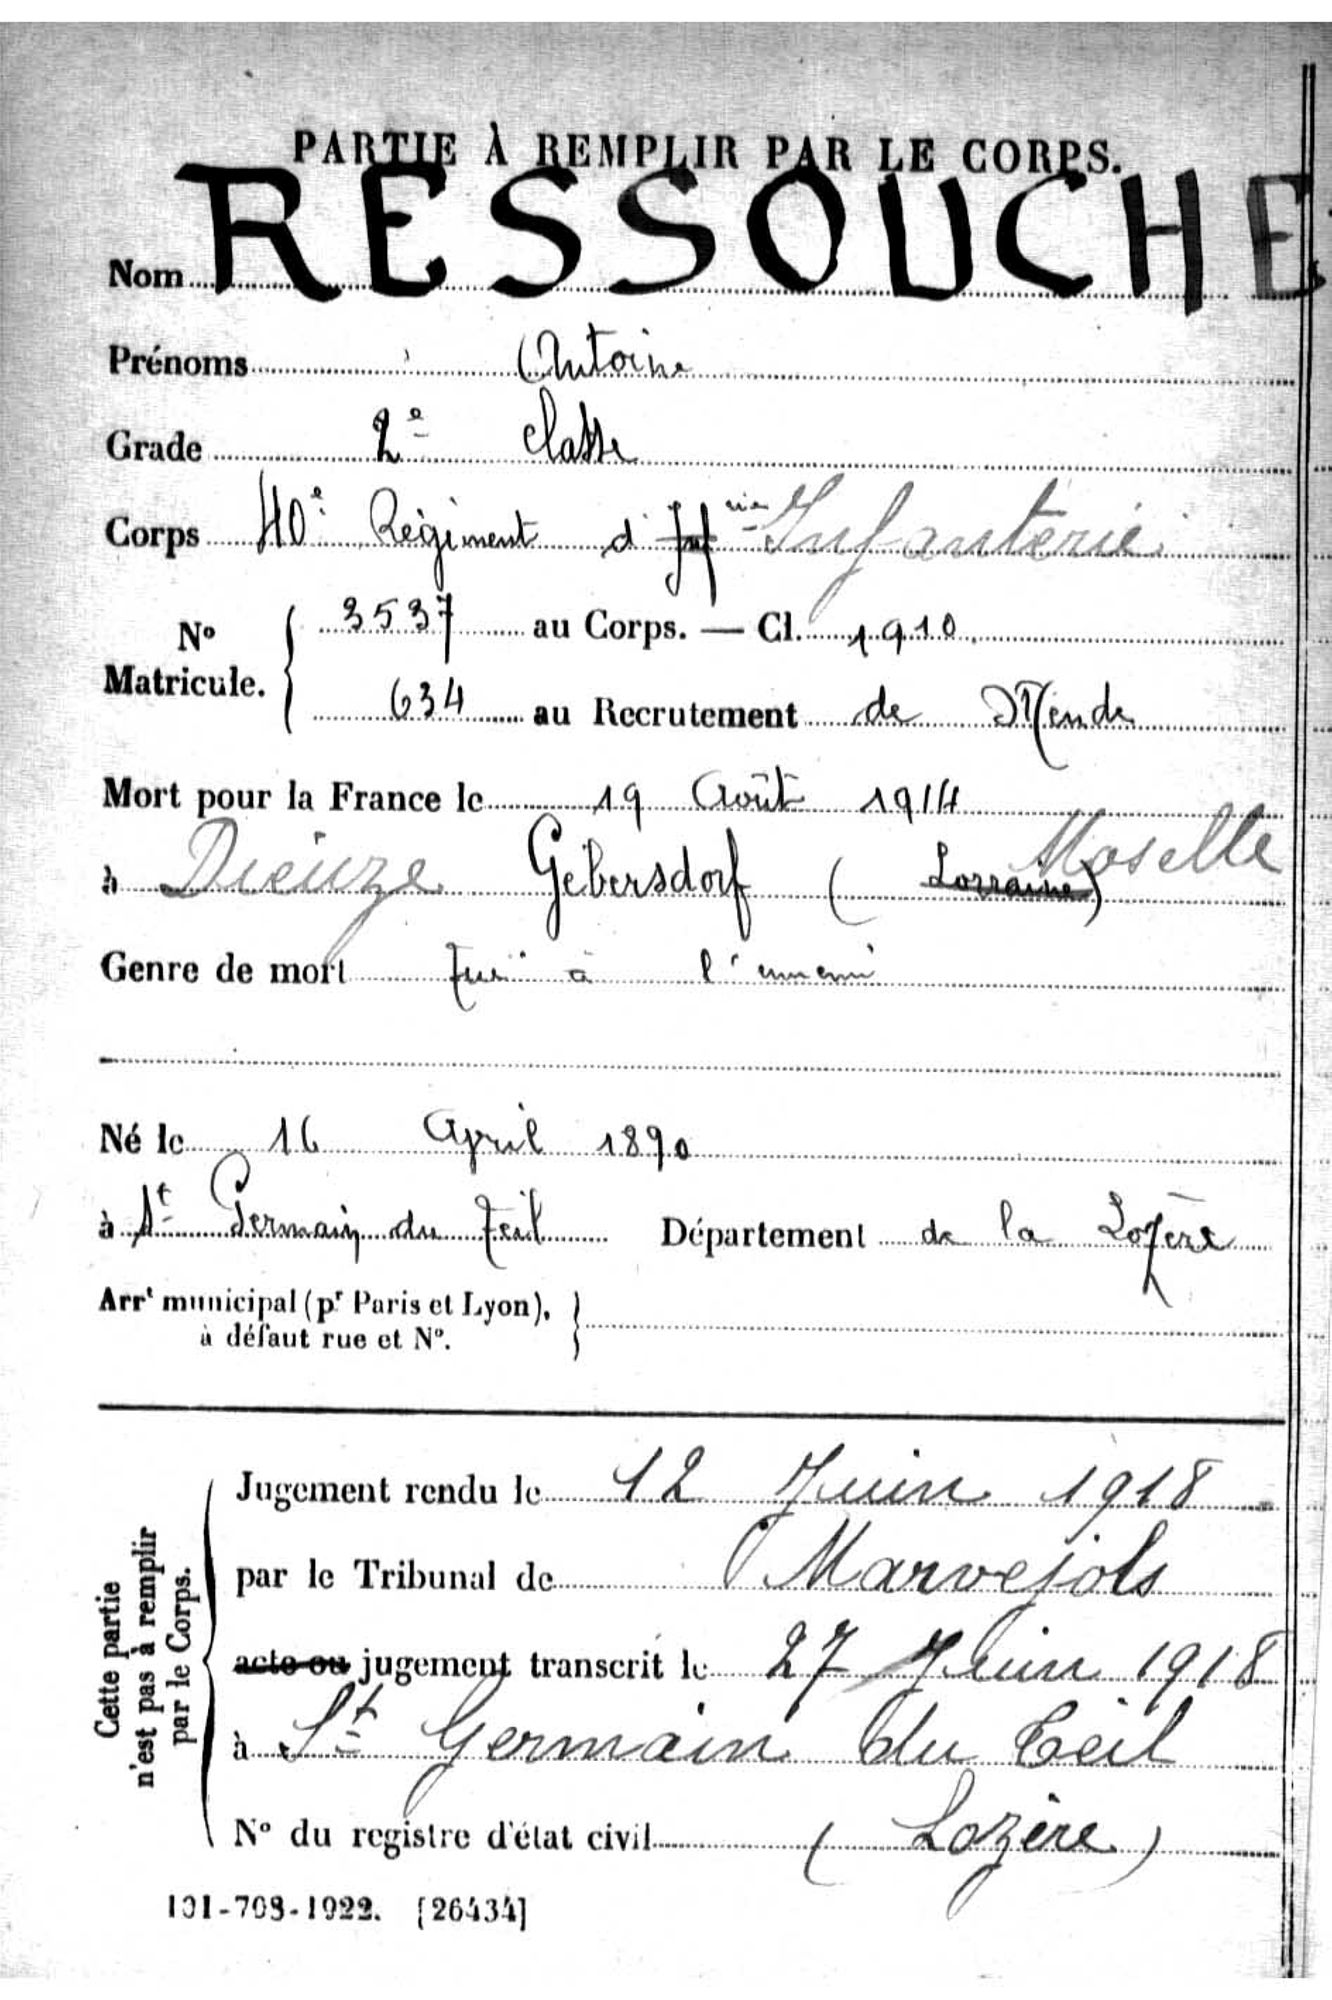 PARTIE À REMPLIR PAR LE CORPS.
Nom RESSOUCHE
Prénoms Antoine
Grade 2e Classe
Corps 40e Régiment d'Infrie Infanterie
No Matricule. { 3537 au Corps. — Cl. 1910
634 au Recrutement de Mende
Mort pour la France le 19 Août 1914
à Dieuze Gebersdorf (Lorraine) Moselle
Genre de mort Tué à l'ennemi
Né le 16 April 1890
à St Germain du Teil Département de la Lozère
Arrt municipal (pr Paris et Lyon), }
à défaut rue et No.
Cette partie
n'est pas à remplir
par le Corps.
Jugement rendu le 12 Juin 1918
par le Tribunal de Marvejols
acte ou jugement transcrit le 27 Juin 1918
à St Germain du Teil
No du registre d'état civil (Lozère)
101-708-1922. [26434]